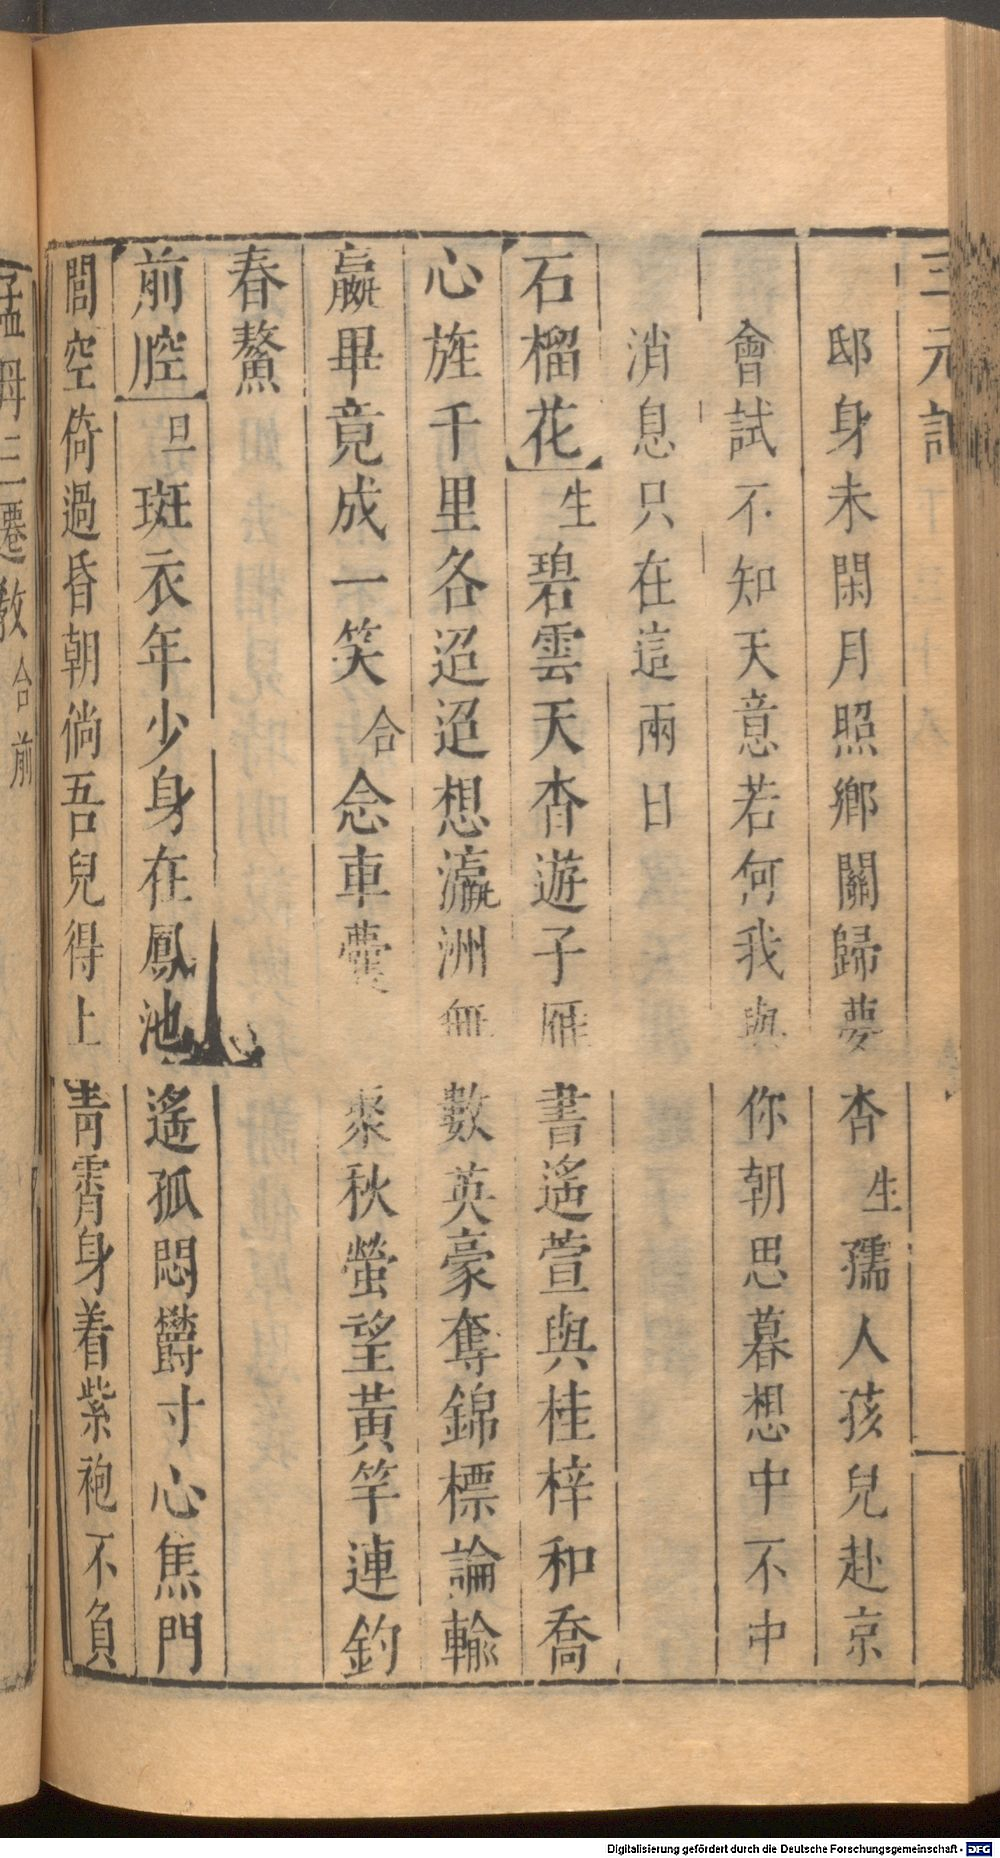 三元記
邸身未閑月照鄉關歸夢杳生孺人孩兒赴京
會試不知天意若何我與你朝思暮想中不中
消息只在這兩日
石榴花生碧雲天杳遊子雁書遙萱與桂梓和喬
心旌千里各迢迢想瀛洲無數英豪奪錦標論輸
嬴畢竟成一笑合念車囊聚秋螢望黃竿連釣
春鰲
前腔旦斑衣年少身在鳳池遙孤悶欝寸心焦門
閭空倚過昏朝倘吾兒得上靑霄身着紫袍不負
孟母三遷教合前
Digitalisierung gefördert durch die Deutsche Forschungsgemeinschaft - DFG